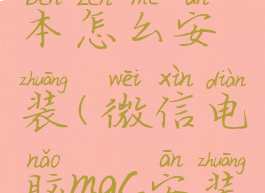 běn zěn me ān
本怎么安
zhuāng wēi xìn diàn
装(微信电
nǎo ān zhuāng
脑mac安装